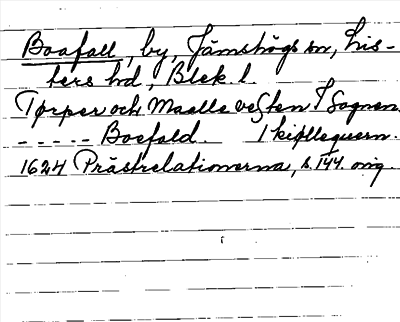 Boafall, by, Jämshögs sn, Lis-
ters hd, Blek. l.
Tørper och Maalle vesten I Sognen.
- - - - - Boefald. 1 kipllequern.
1624 Prästrelationerna, s. 144. orig.